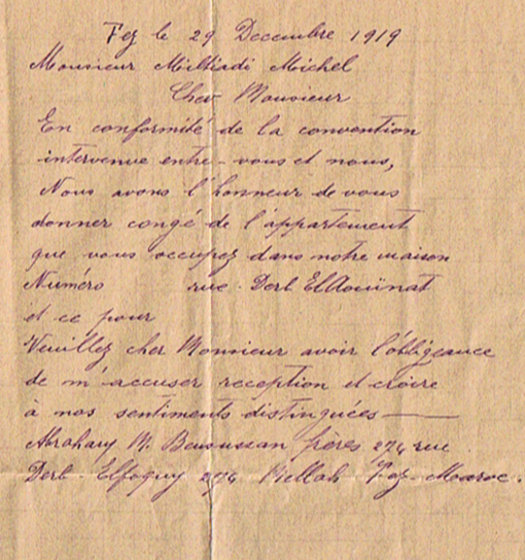 Fez le 29 Decembre 1919
Monsieur Miltiadi Michel
Cher Monsieur
En conformité de la convention
intervenue entre-vous et nous,
Nous avons l'honneur de vous
donner congé de l'appartement
que vous occupez dans notre maison
Numéro rue Derb ElAouïnat
et ce pour
Veuillez cher Monsieur avoir l'obligeance
de m'accuser reception et croire
à nos sentiments distinguées
M. Bensussan frères 274 rue
Derb 274 Mellah Fez-Maroc.